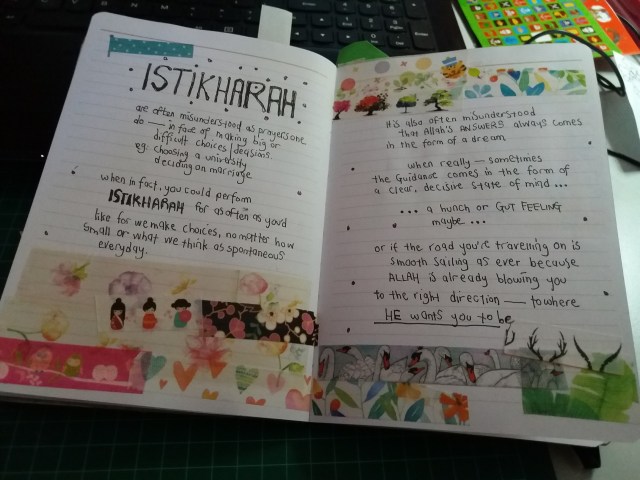 ISTIKHARAH
are often misunderstood as prayers one
do — in face of making big or
difficult choices/decisions.
eg: choosing a university
deciding on marriage
when in fact, you could perform
ISTIKHARAH for as often as you'd
like for we make choices, no matter how
small or what we think as spontaneous
everyday.
it is also often misunderstood
that Allah's ANSWERS always comes
in the form of a dream.
when really — sometimes
the Guidance comes in the form of
a clear, decisive state of mind...
... a hunch or GUT FEELING
maybe...
or if the road you're travelling on is
smooth sailing as ever because
ALLAH is already blowing you
to the right direction — to where
HE wants you to be